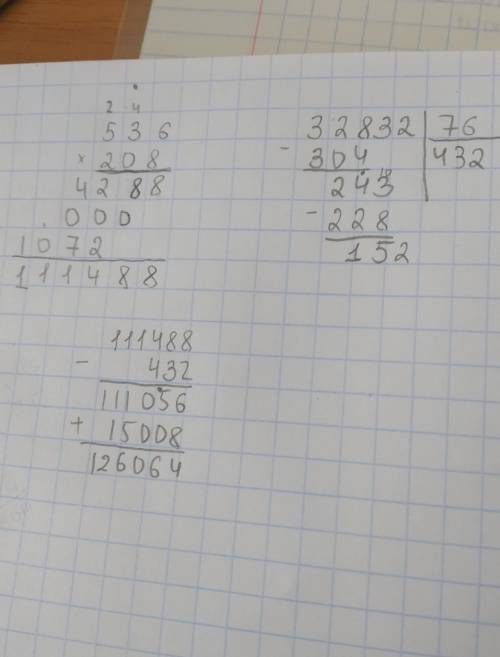 2 4
536
× 208
4288
000
1072
111488
32832 | 76
- 304 | 432
243
- 228
152
111488
- 432
111056
+ 15008
126064